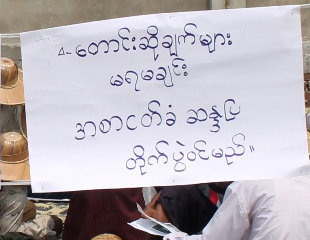 ၄- တောင်းဆိုချက်များ
မရမချင်း
အစာငတ်ခံ ဆန္ဒပြ
တိုက်ပွဲဝင်မည်။